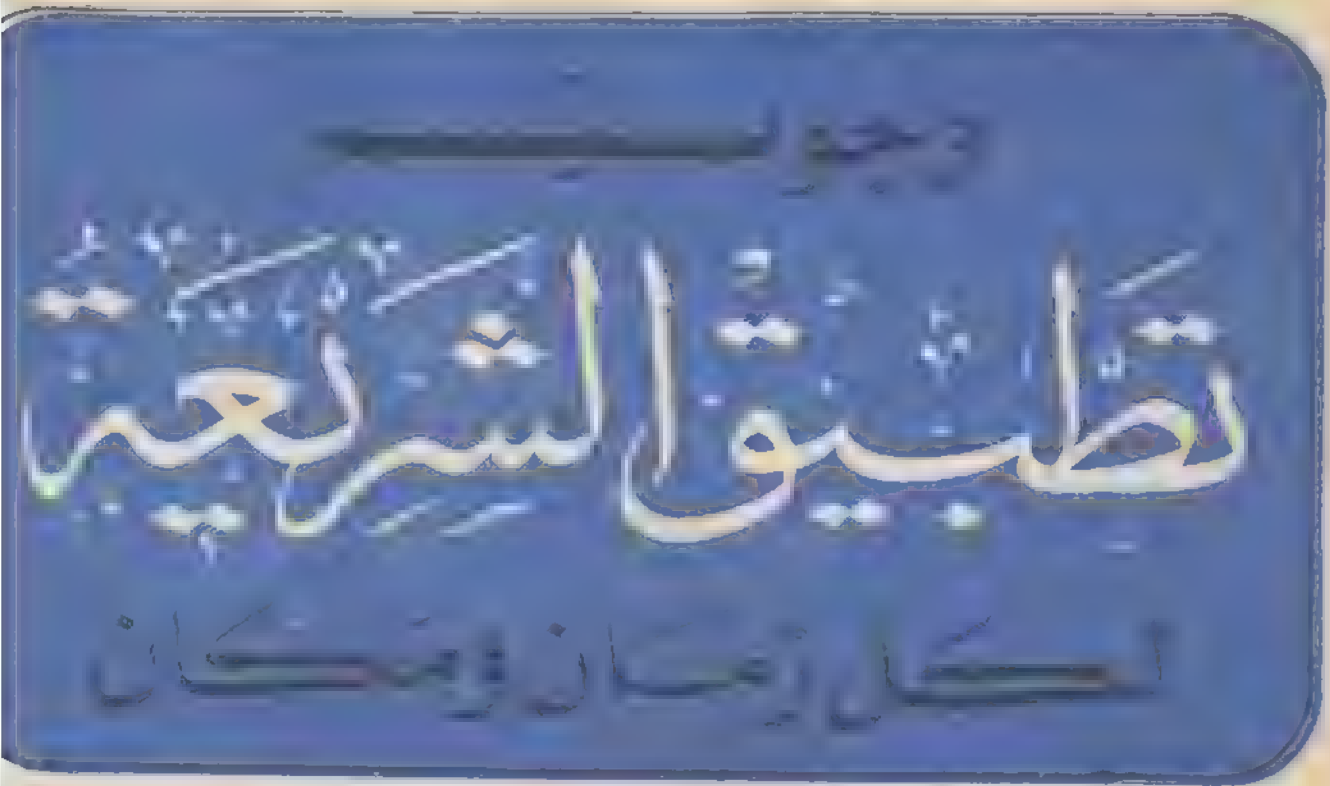 وجوب
تطبيق الشريعة
لكل زمان ومكان